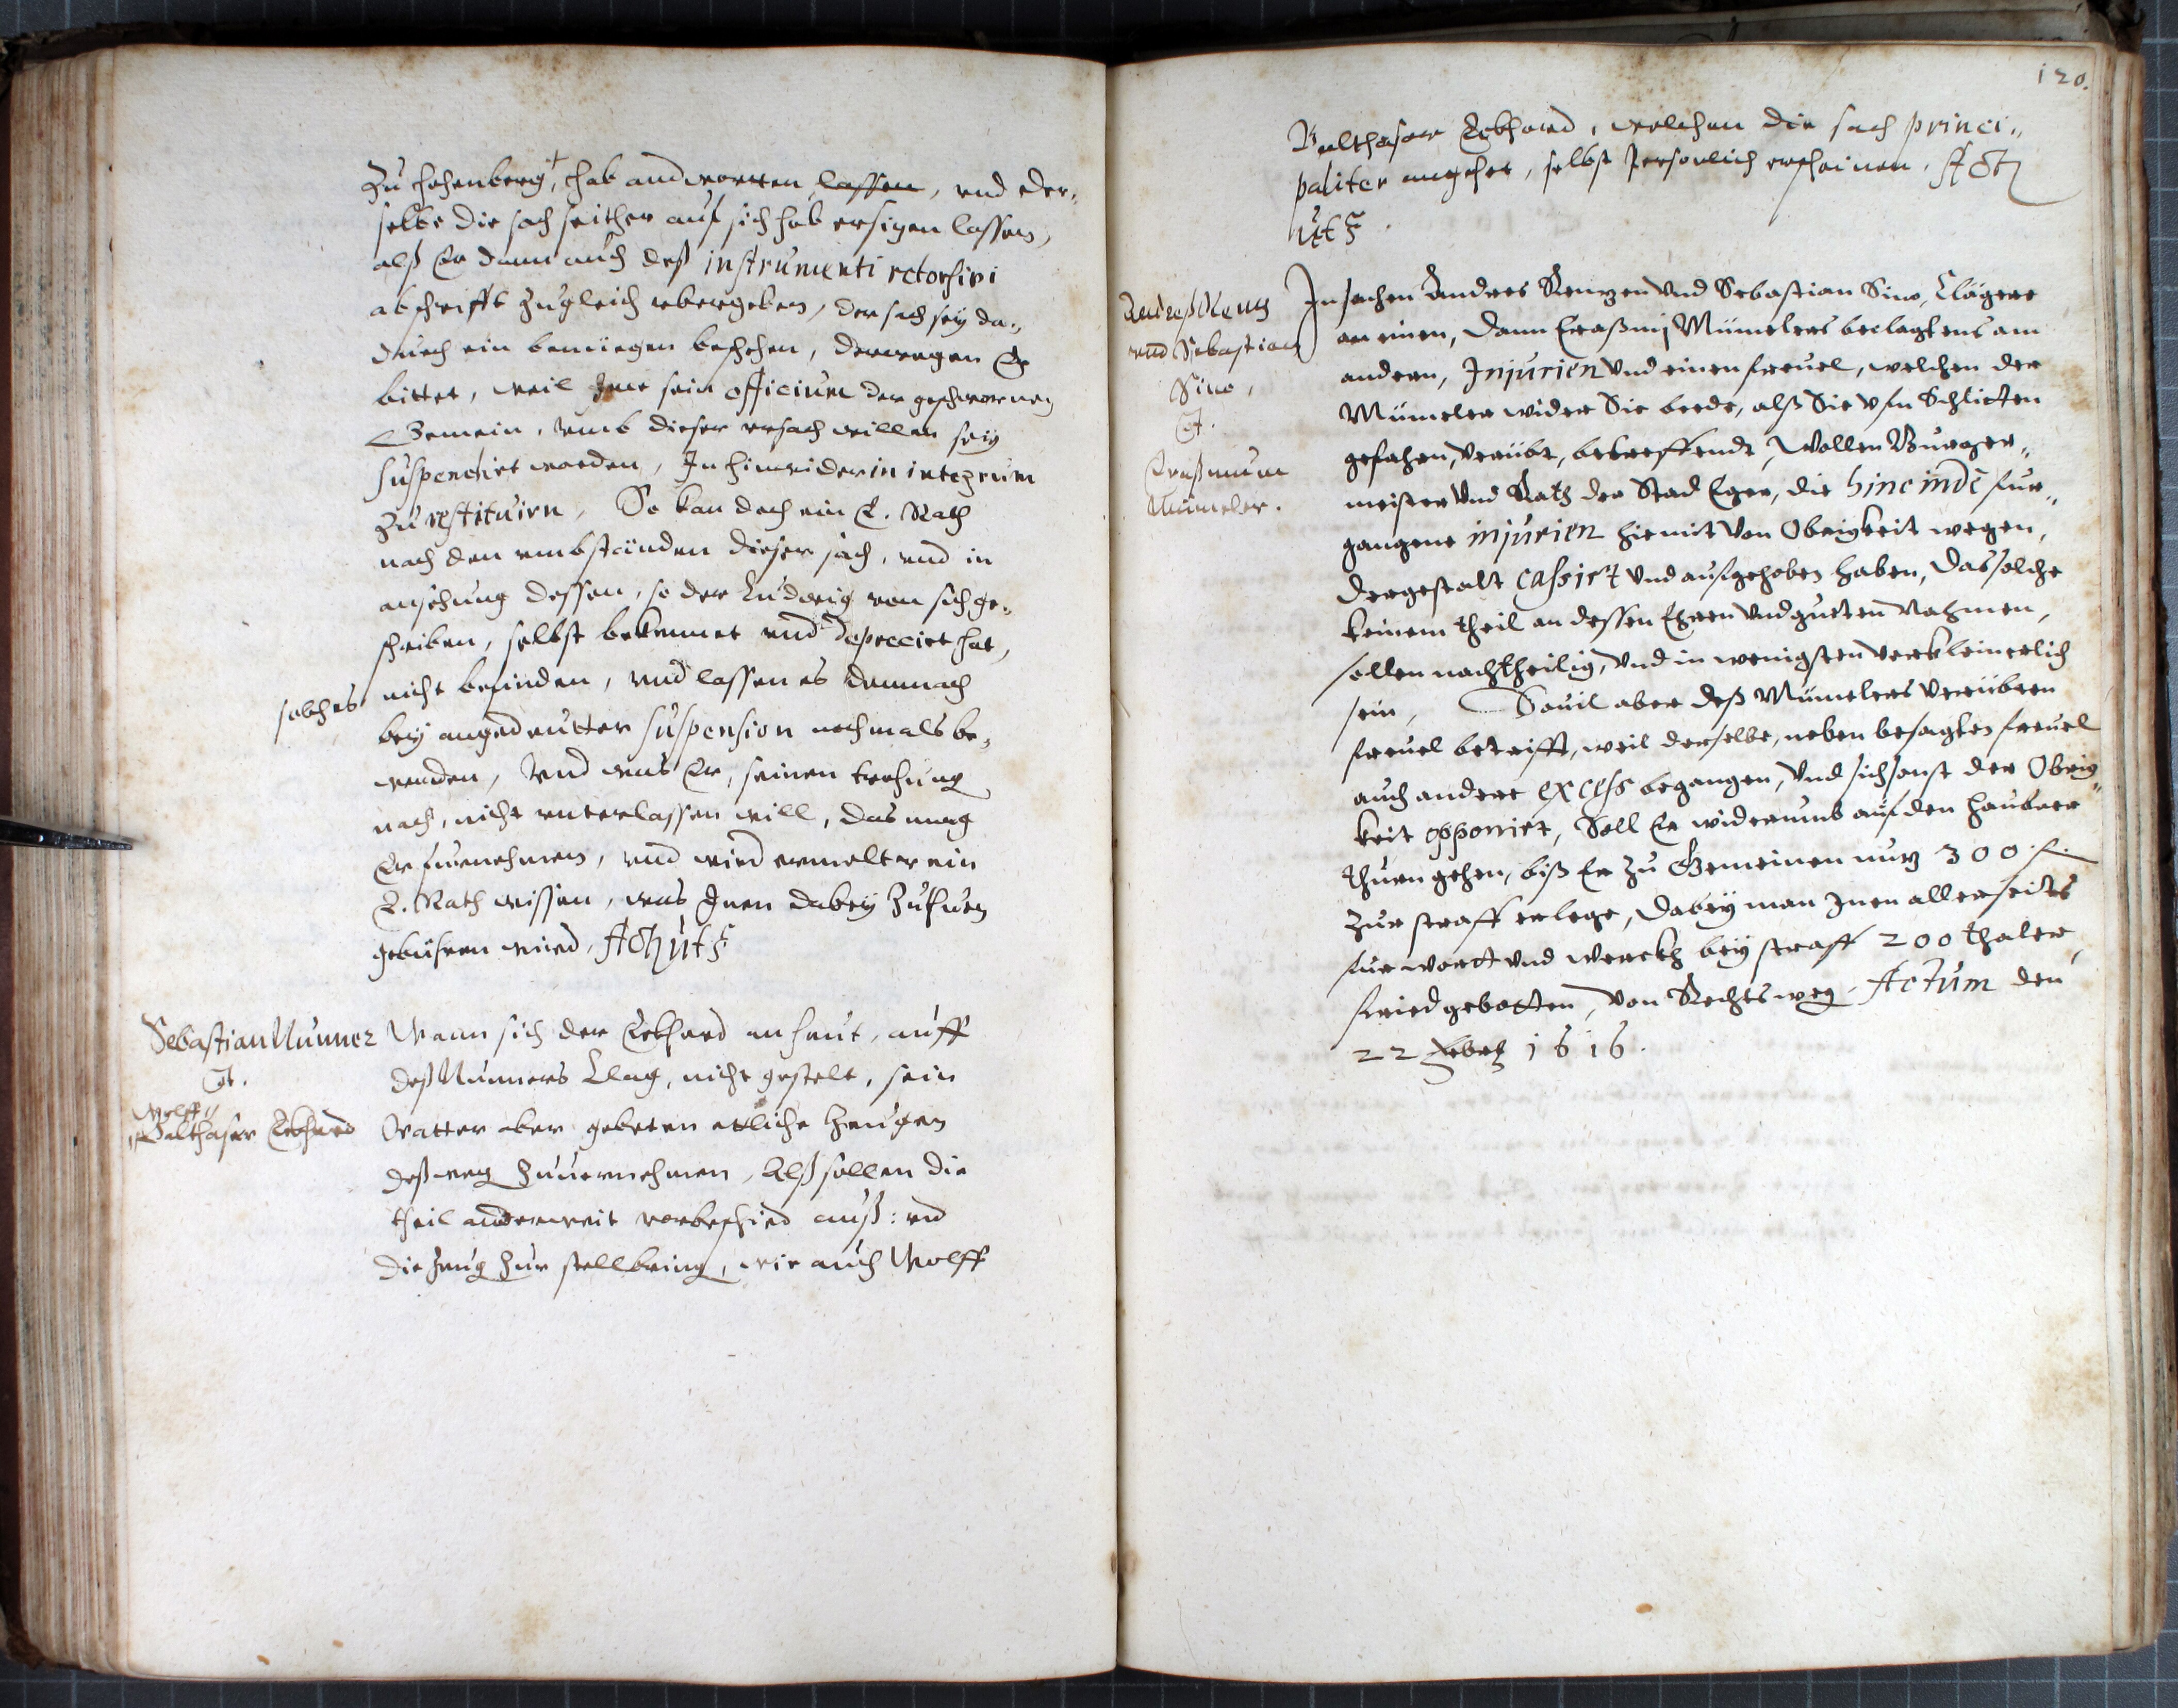 zu Hohenberg, hab andworten lassen, vnd der„
selbe die sach seither auf sich hab ersizen lassen,
alß Er dann auch deß instrumenti retorsivi
abschrifft zugleich vbergeben, der sach sey da„
durch ein benüegen beschehen, derwegen Er
bittet, weil Ime sein officium der geschwornen
Gemein, vmb dieser vrsach willen sey
suspendirt worden, In hinwider in integrum
zu restituirn, So kan doch ein E. Rath
nach den vmbständen dieser sach, vnd in
ansehung dessen, so der Ludwig von sich ge„
schriben, selbst bekennet vnd deprecirt hat,
solches nicht befinden, vnd lassen es demnach
bey angedeutter suspension nochmals be„
wenden, Vnd was Er, seinen trohung
nach, nicht vnterlassen will, das mag
Er furnehmen, vnd wird ermelter ein
E. Rath wissen, was Inen dabey zuthuen
gebühren wird, Act. ut s.
Sebastian Nunner
Ct.
Wolff
Balthasar Eckhard
Wann sich der Eckhard an heut, auff
deß Nunners Clag, nicht gestelt, sein
Vatter aber gebeten etliche Zeugen
deßweg zuuernehmen, Alß sollen die
theil anderweit vorbeschied auß: vnd
die Zeug zur stell bring, wie auch Wolff
120.
Balthasar Eckhard, welchen die sach princi„
paliter angehet, selbst Persönlich erscheinen. Act.
ut s.
Andreß Renz
vnd Sebastian
Sino,
Ct.
Eraßmum
Mümeler.
In sachen Andres Renzen vnd Sebastian Sino, Clägere
an einen, dann Eraßmj Mümelers beclagtens am
andern, Injurien vnd einen freuel, welchen der
Mümeler wider Sie beede, alß Sie vfn Schlitten
gefahren, verübt, betreffendt, Wollen Burger„
meister vnd Rath der Stad Eger, die hinc inde fur„
gangene injurien hiemit von Obrigkeit wegen,
dergestalt cassirt vnd aufgehoben haben, das solche
keinem theil an dessen Ehren vnd guten Nahmen,
sollen nachtheilig, vnd in wenigsten verkleinerlich
sein, Souil aber deß Mümelers verübten
freuel betrifft, weil derselbe, neben besagten freuel
auch andere excess begangen, vnd sich sonst der Obrig„
keit opponirt, Soll Er widerumb auf den
thurn gehen, biß Er zu Gemeinen nuz 300 f.
zur straff erlege, dabey man Inen allerseits
fur wort vnd werckh bey straff 200 thaler,
fried gebotten, von Rechts weg. Actum den
22 1616.